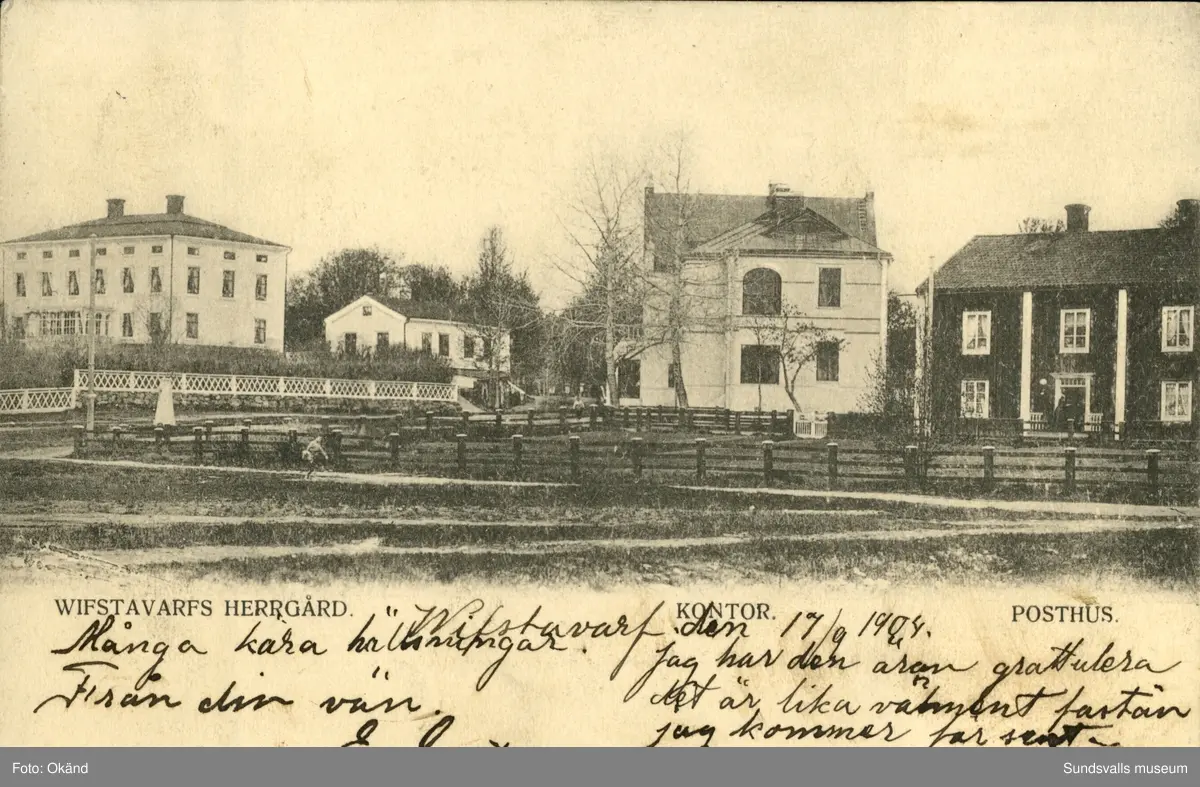 WIFSTAVARFS HERRGÅRD. KONTOR. POSTHUS.
Wifstavarf den 17/9 1904.
Många kära hällsningar.
Från din vän.
jag har den äran grattulera
det är lika välment fastän
jag kommer för sent
Foto: Okänd
Sundsvalls museum